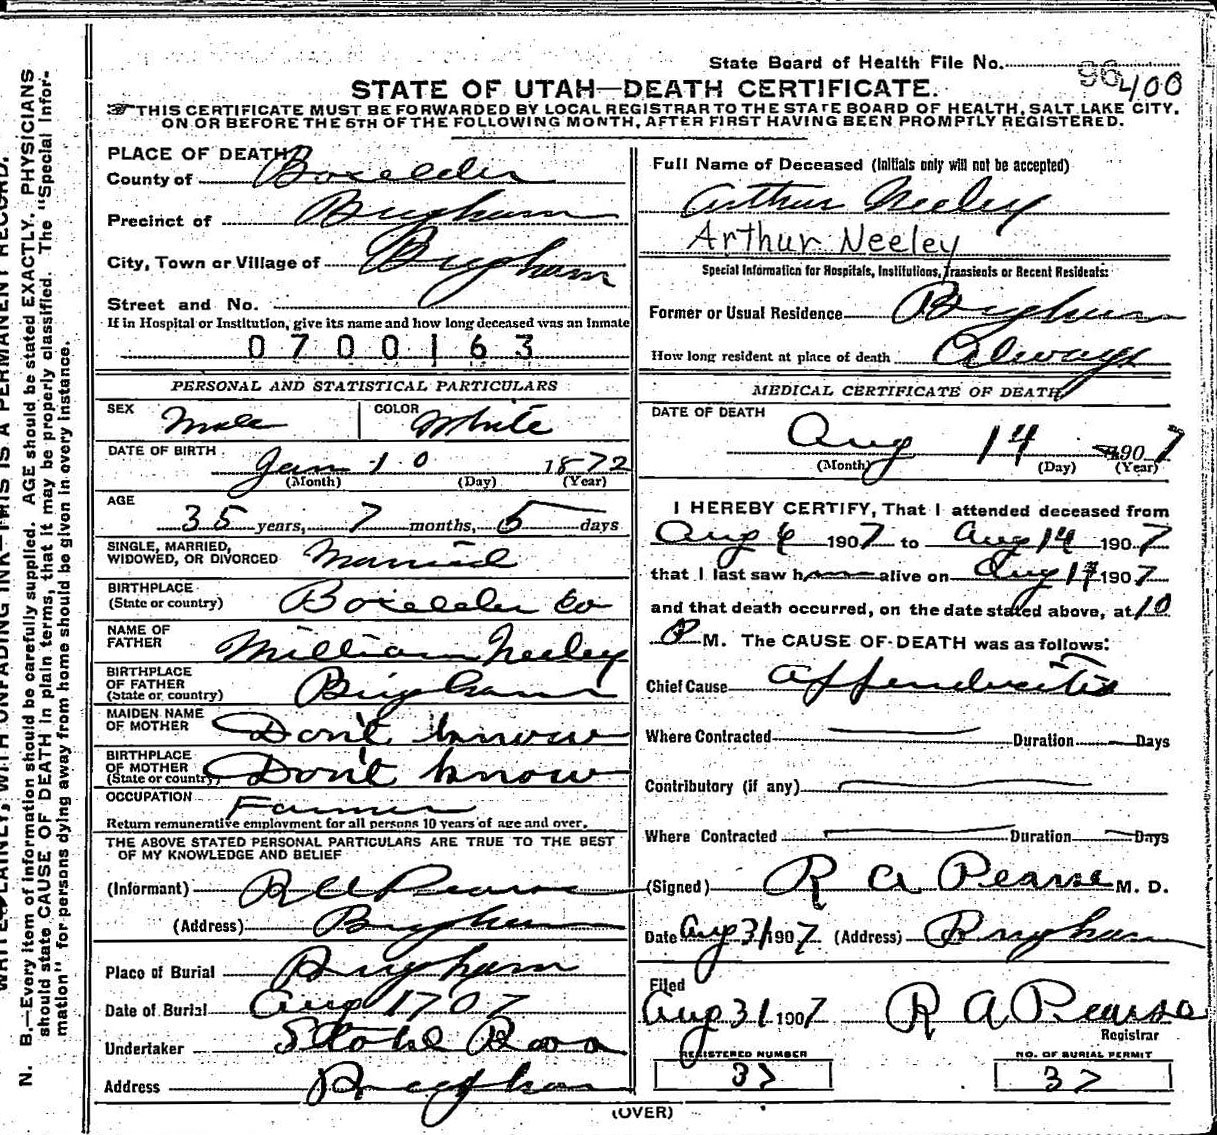 State Board of Health File No. 96 400
STATE OF UTAH—DEATH CERTIFICATE.
THIS CERTIFICATE MUST BE FORWARDED BY LOCAL REGISTRAR TO THE STATE BOARD OF HEALTH, SALT LAKE CITY,
ON OR BEFORE THE 5TH OF THE FOLLOWING MONTH, AFTER FIRST HAVING BEEN PROMPTLY REGISTERED.
PLACE OF DEATH
County of Boxelder
Precinct of Brigham
City, Town or Village of Brigham
Street and No.
If in Hospital or Institution, give its name and how long deceased was an inmate
0700163
PERSONAL AND STATISTICAL PARTICULARS
SEX Male COLOR White
DATE OF BIRTH Jan 10 1872
(Month) (Day) (Year)
AGE 35 years, 7 months, 5 days
SINGLE, MARRIED,
WIDOWED, OR DIVORCED Married
BIRTHPLACE
(State or country) Boxelder Co
NAME OF
FATHER William Neeley
BIRTHPLACE
OF FATHER
(State or country) Brigham
MAIDEN NAME
OF MOTHER Don't know
BIRTHPLACE
OF MOTHER
(State or country) Don't know
OCCUPATION Farmer
Return remunerative employment for all persons 10 years of age and over.
THE ABOVE STATED PERSONAL PARTICULARS ARE TRUE TO THE BEST
OF MY KNOWLEDGE AND BELIEF
(Informant) R A Pearse
(Address) Brigham
Place of Burial Brigham
Date of Burial Aug 17 07
Undertaker
Address Brigham
Full Name of Deceased (Initials only will not be accepted)
Arthur Neeley
Arthur Neeley
Special Information for Hospitals, Institutions, Transients or Recent Residents:
Former or Usual Residence Brigham
How long resident at place of death Always
MEDICAL CERTIFICATE OF DEATH
DATE OF DEATH
Aug 14 1907
(Month) (Day) (Year)
I HEREBY CERTIFY, That I attended deceased from
Aug 6 1907 to Aug 14 1907
that I last saw h alive on Aug 14 1907
and that death occurred, on the date stated above, at 10
P M. The CAUSE OF DEATH was as follows:
Chief Cause Appendicitis
Where Contracted Duration Days
Contributory (if any)
Where Contracted Duration Days
(Signed) R A Pearse M. D.
Date Aug 31 1907 (Address) Brigham
Filed
Aug 31 1907 R A Pearse
Registrar
REGISTERED NUMBER NO. OF BURIAL PERMIT
37 37
(OVER)
N. B.—Every item of information should be carefully supplied. AGE should be stated EXACTLY. PHYSICIANS
should state CAUSE OF DEATH in plain terms, that it may be properly classified. The "Special Infor-
mation" for persons dying away from home should be given in every instance.
WRITE PLAINLY, WITH UNFADING INK—THIS IS A PERMANENT RECORD.